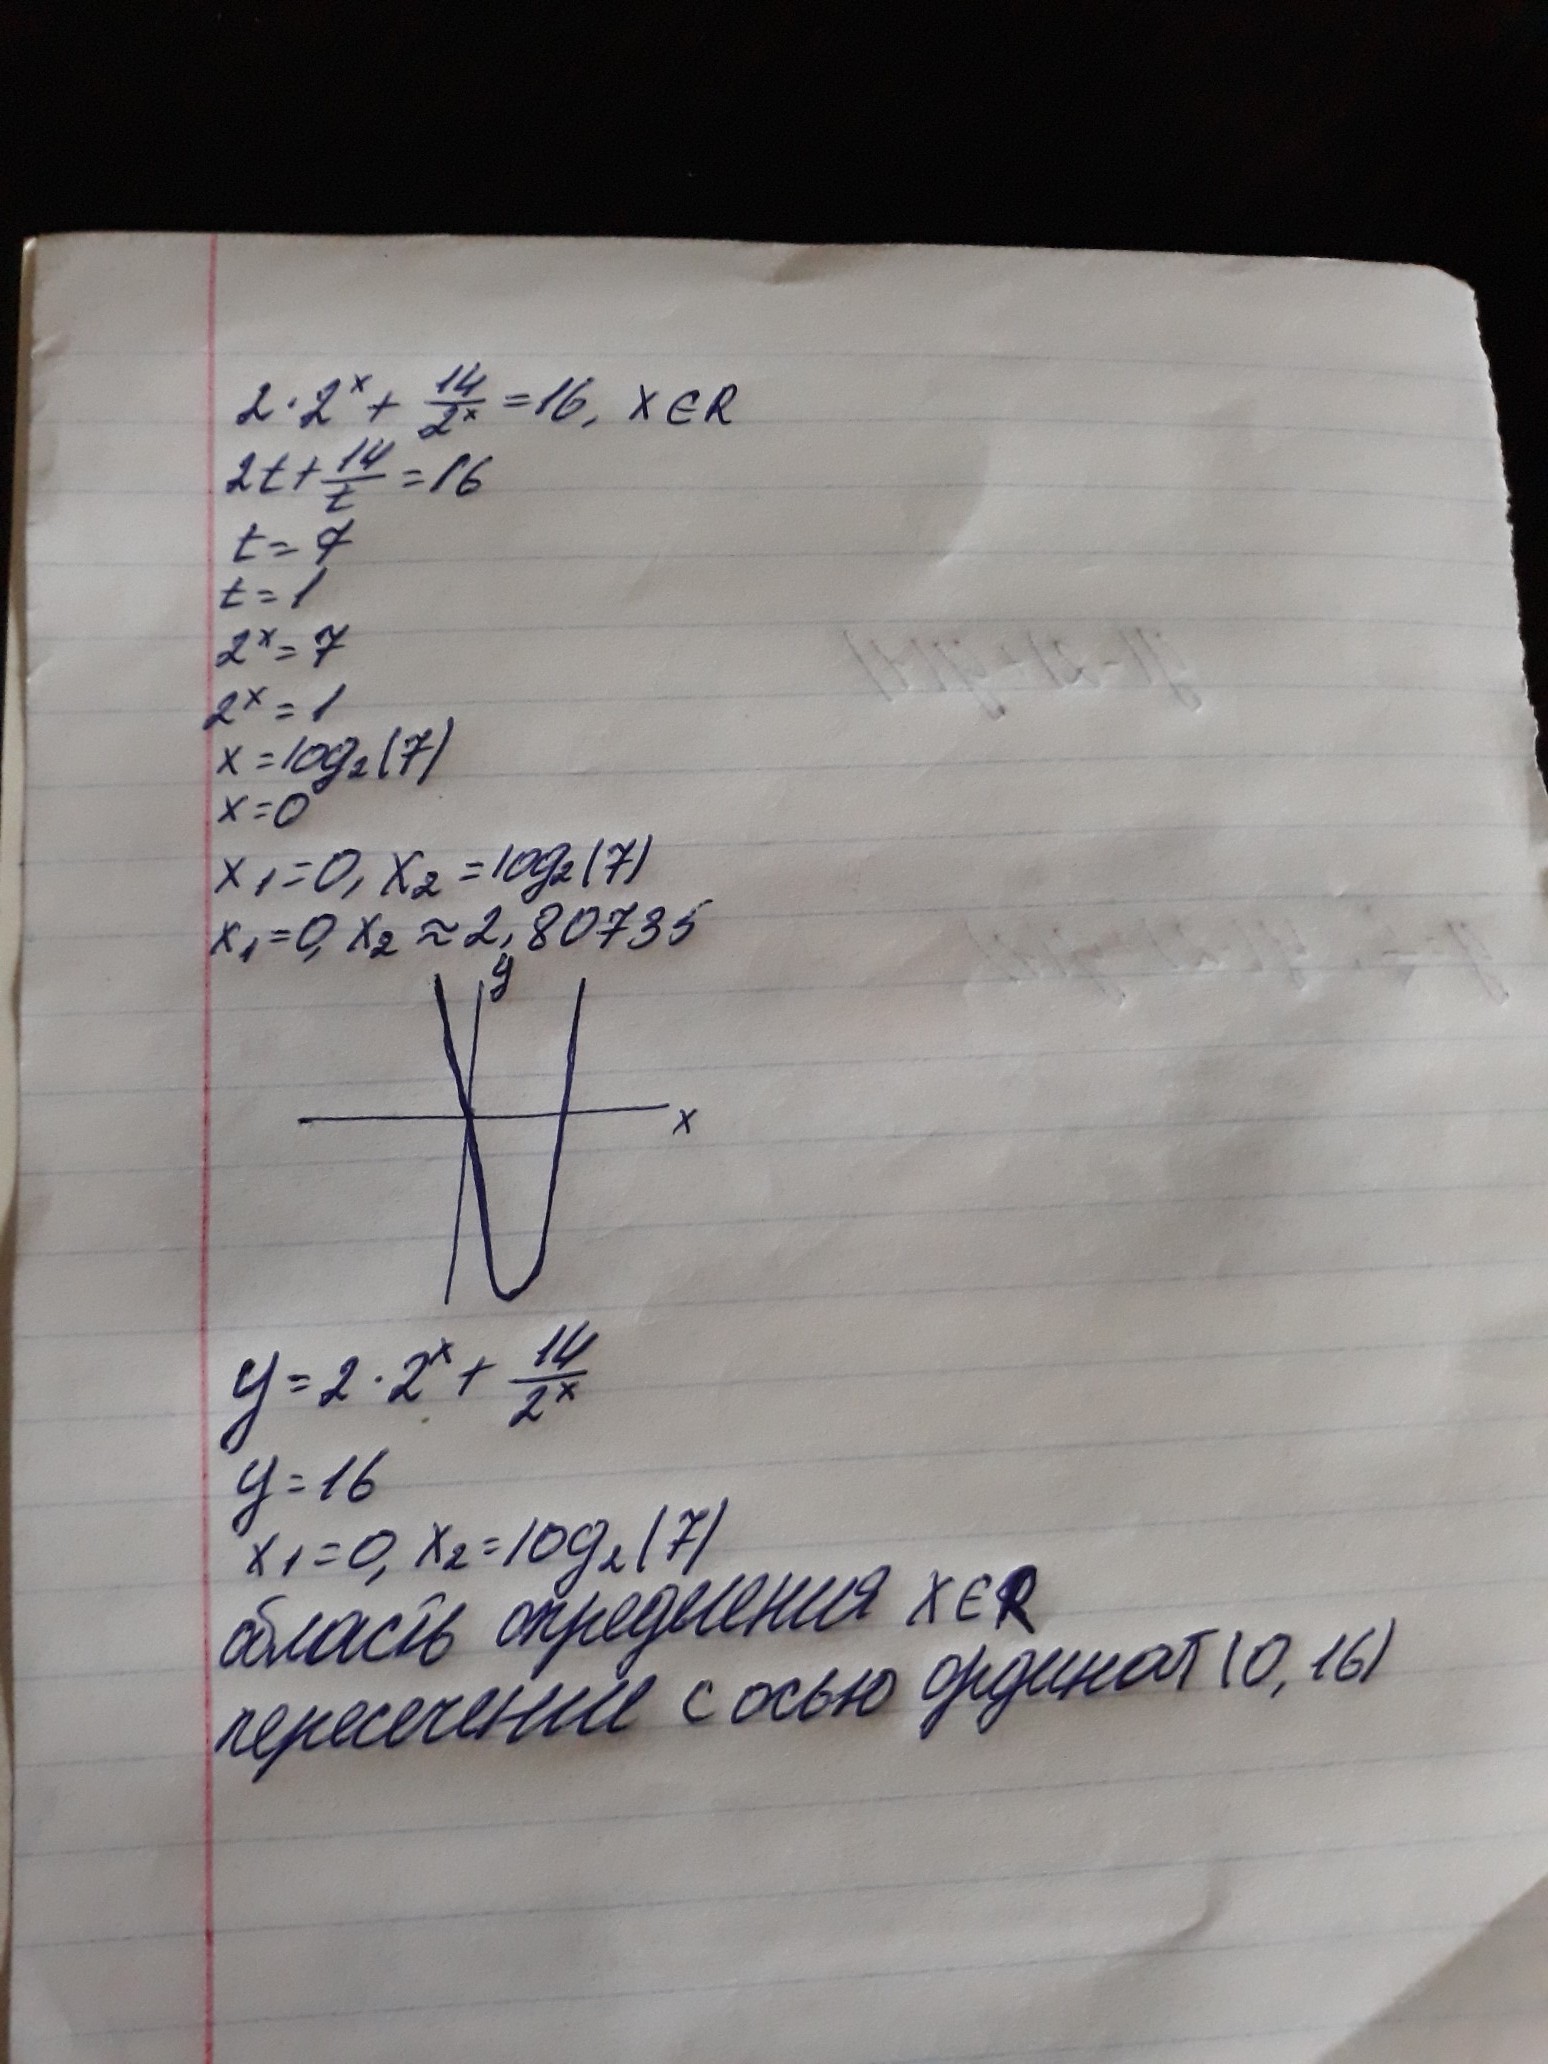 2·2ˣ + 14/2ˣ = 16, x ∈ R
2t + 14/t = 16
t = 7
t = 1
2ˣ = 7
2ˣ = 1
x = log₂(7)
x = 0
x₁ = 0, x₂ = log₂(7)
x₁ = 0, x₂ ≈ 2,80735
y
x
y = 2·2ˣ + 14/2ˣ
y = 16
x₁ = 0, x₂ = log₂(7)
область определения x ∈ R
пересечение с осью ординат (0, 16)